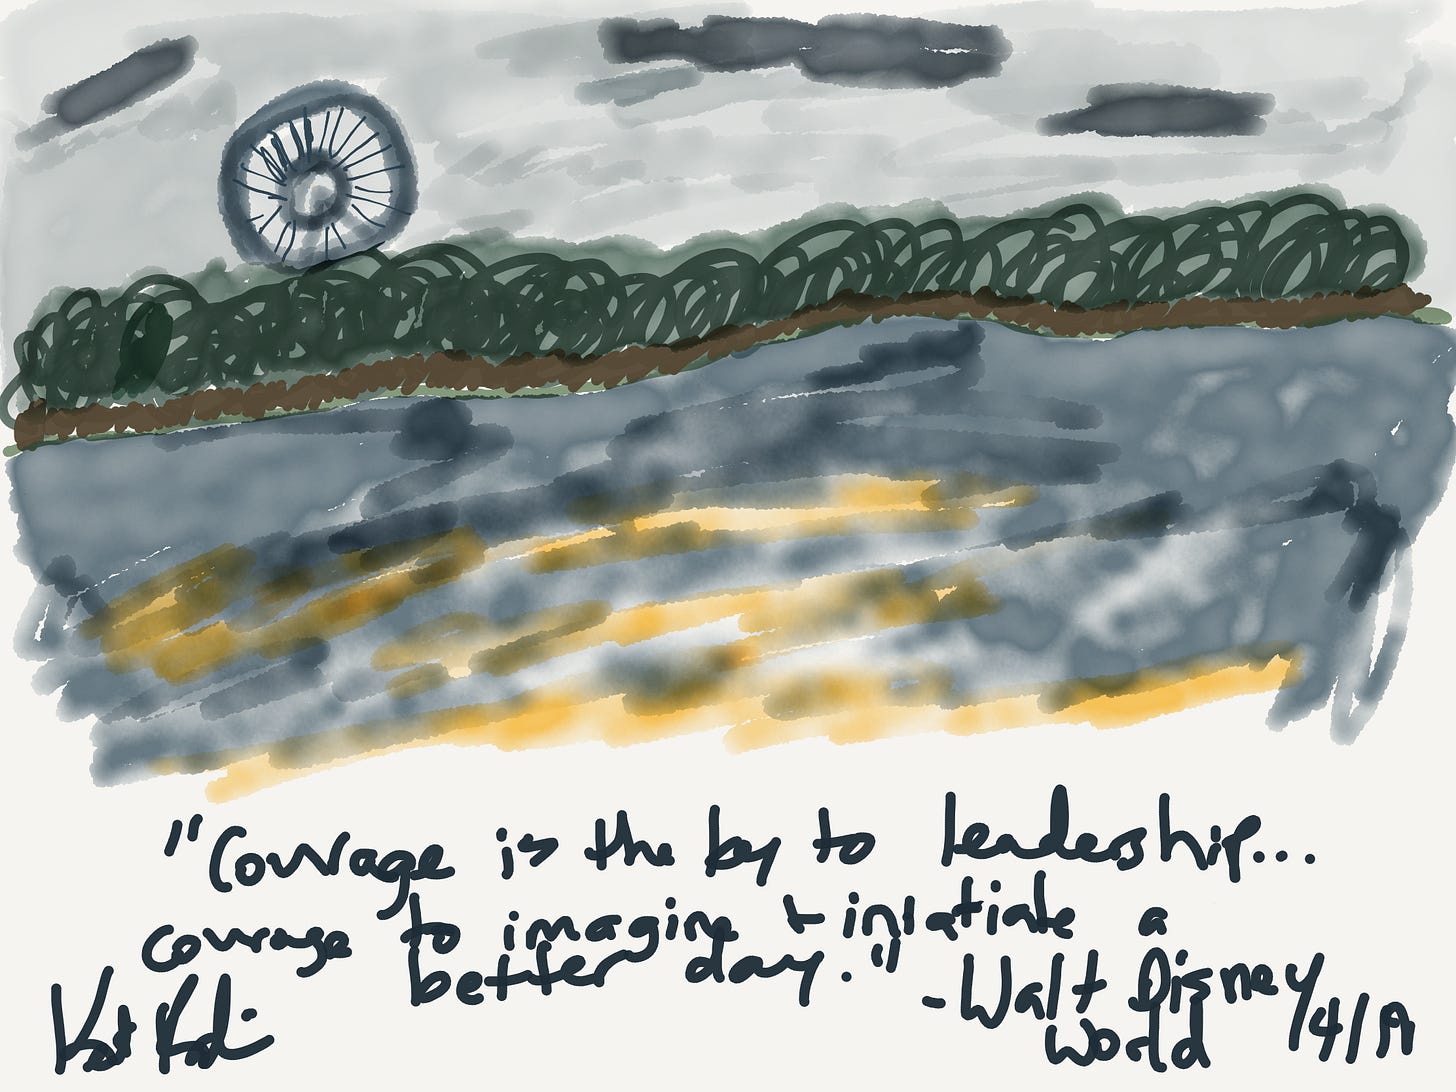 "Courage is the key to leadership...
courage to imagine + initiate a
better day."
-Walt Disney
World